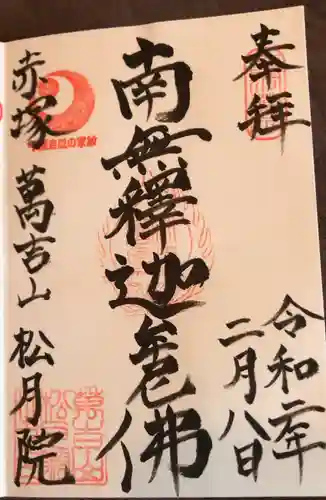 奉拝
令和二年
二月八日
南無釋迦牟尼佛
赤塚
萬吉山 松月院